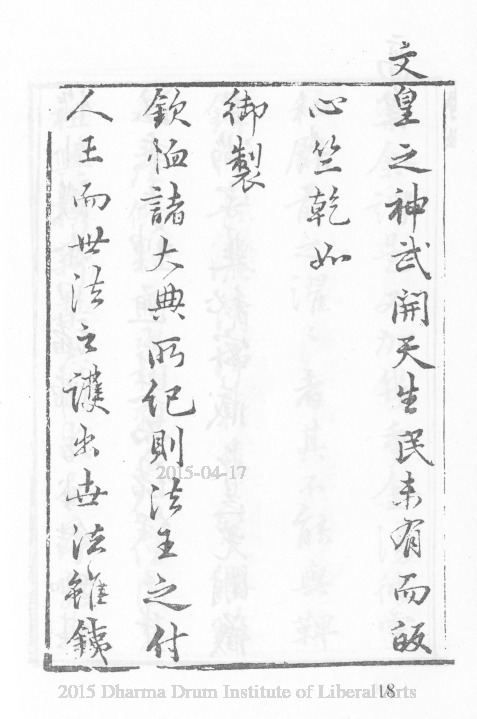 文皇之神武開天生民未有而皈
心竺乾如
御製
欽恤諸大典所紀則法王之付
人王而世法之護出世法雖錢
2015-04-17
2015 Dharma Drum Institute of Liberal Arts
18